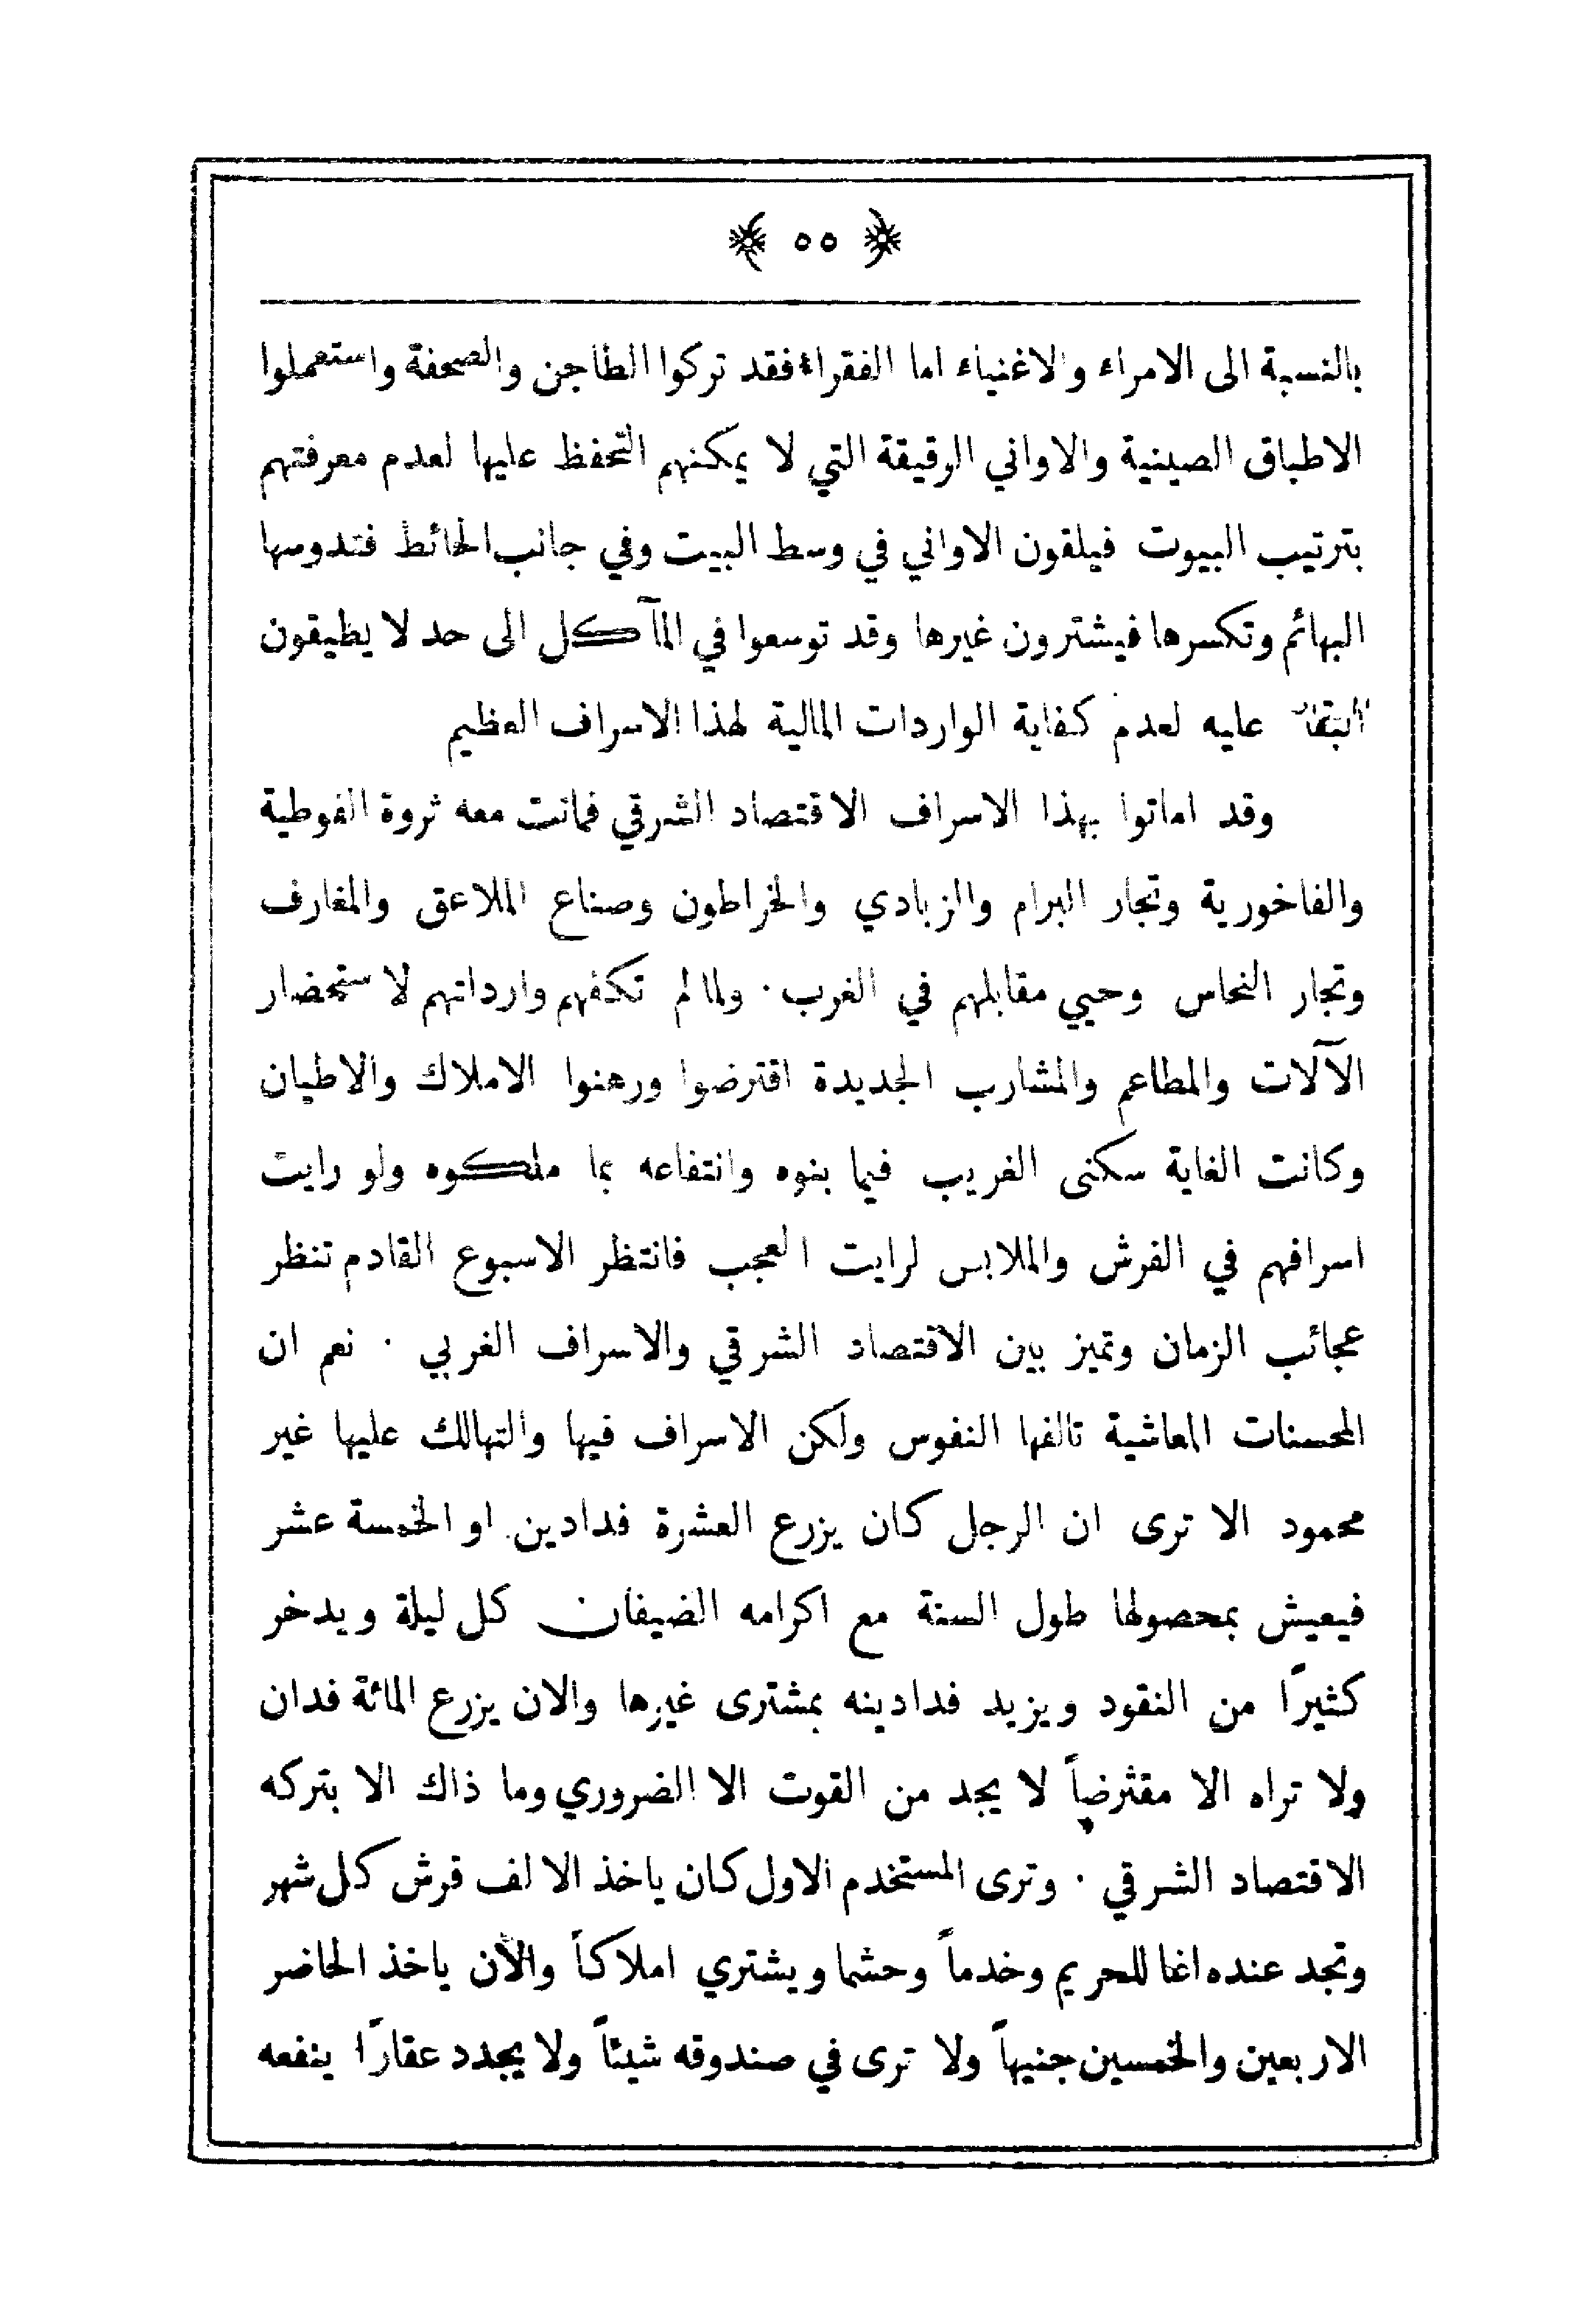 ٥٥
بالنسبة الى الامراء والاغنياء اما الفقراء فقد تركوا الطاجن والصحفة واستعملوا
الاطباق الصينية والاواني الرقيقة التي لا يمكنهم التحفظ عليها لعدم معرفتهم
بترتيب البيوت فيلقون الاواني في وسط البيت وفي جانب الحائط فتدوسها
البهائم وتكسرها فيشترون غيرها وقد توسعوا في المآكل الى حد لا يطيقون
البقاء عليه لعدم كفاية الواردات المالية لهذا الاسراف العظيم
وقد اماتوا بهذا الاسراف الاقتصاد الشرقي فماتت معه ثروة الفوطية
والفاخورية وتجار البرام والزبادي والخراطون وصناع الملاعق والمغارف
وتجار النحاس وحيي مقابلهم في الغرب. ولما لم تكفهم وارداتهم لاستحضار
الآلات والمطاعم والمشارب الجديدة اقترضوا ورهنوا الاملاك والاطيان
وكانت الغاية سكنى الغريب فيما بنوه وانتفاعه بما ملكوه ولو رايت
اسرافهم في الفرش والملابس لرايت العجب فانتظر الاسبوع القادم تنظر
عجائب الزمان وتميز بين الاقتصاد الشرقي والاسراف الغربي . نعم ان
المحسنات المعاشية تالفها النفوس ولكن الاسراف فيها والتهالك عليها غير
محمود الا ترى ان الرجل كان يزرع العشرة فدادين او الخمسة عشر
فيعيش بمحصولها طول السنة مع اكرامه الضيفان كل ليلة ويدخر
كثيرًا من النقود ويزيد فدادينه بمشترى غيرها والان يزرع المائة فدان
ولا تراه الا مقترضاً لا يجد من القوت الا الضروري وما ذاك الا بتركه
الاقتصاد الشرقي . وترى المستخدم الاول كان ياخذ الالف قرش كل شهر
وتجد عنده اغا للحريم وخدماً وحشما ويشتري املاكاً والآن ياخذ الحاضر
الاربعين والخمسين جنيهاً ولا ترى في صندوقه شيئاً ولا يجدد عقارًا ينفعه